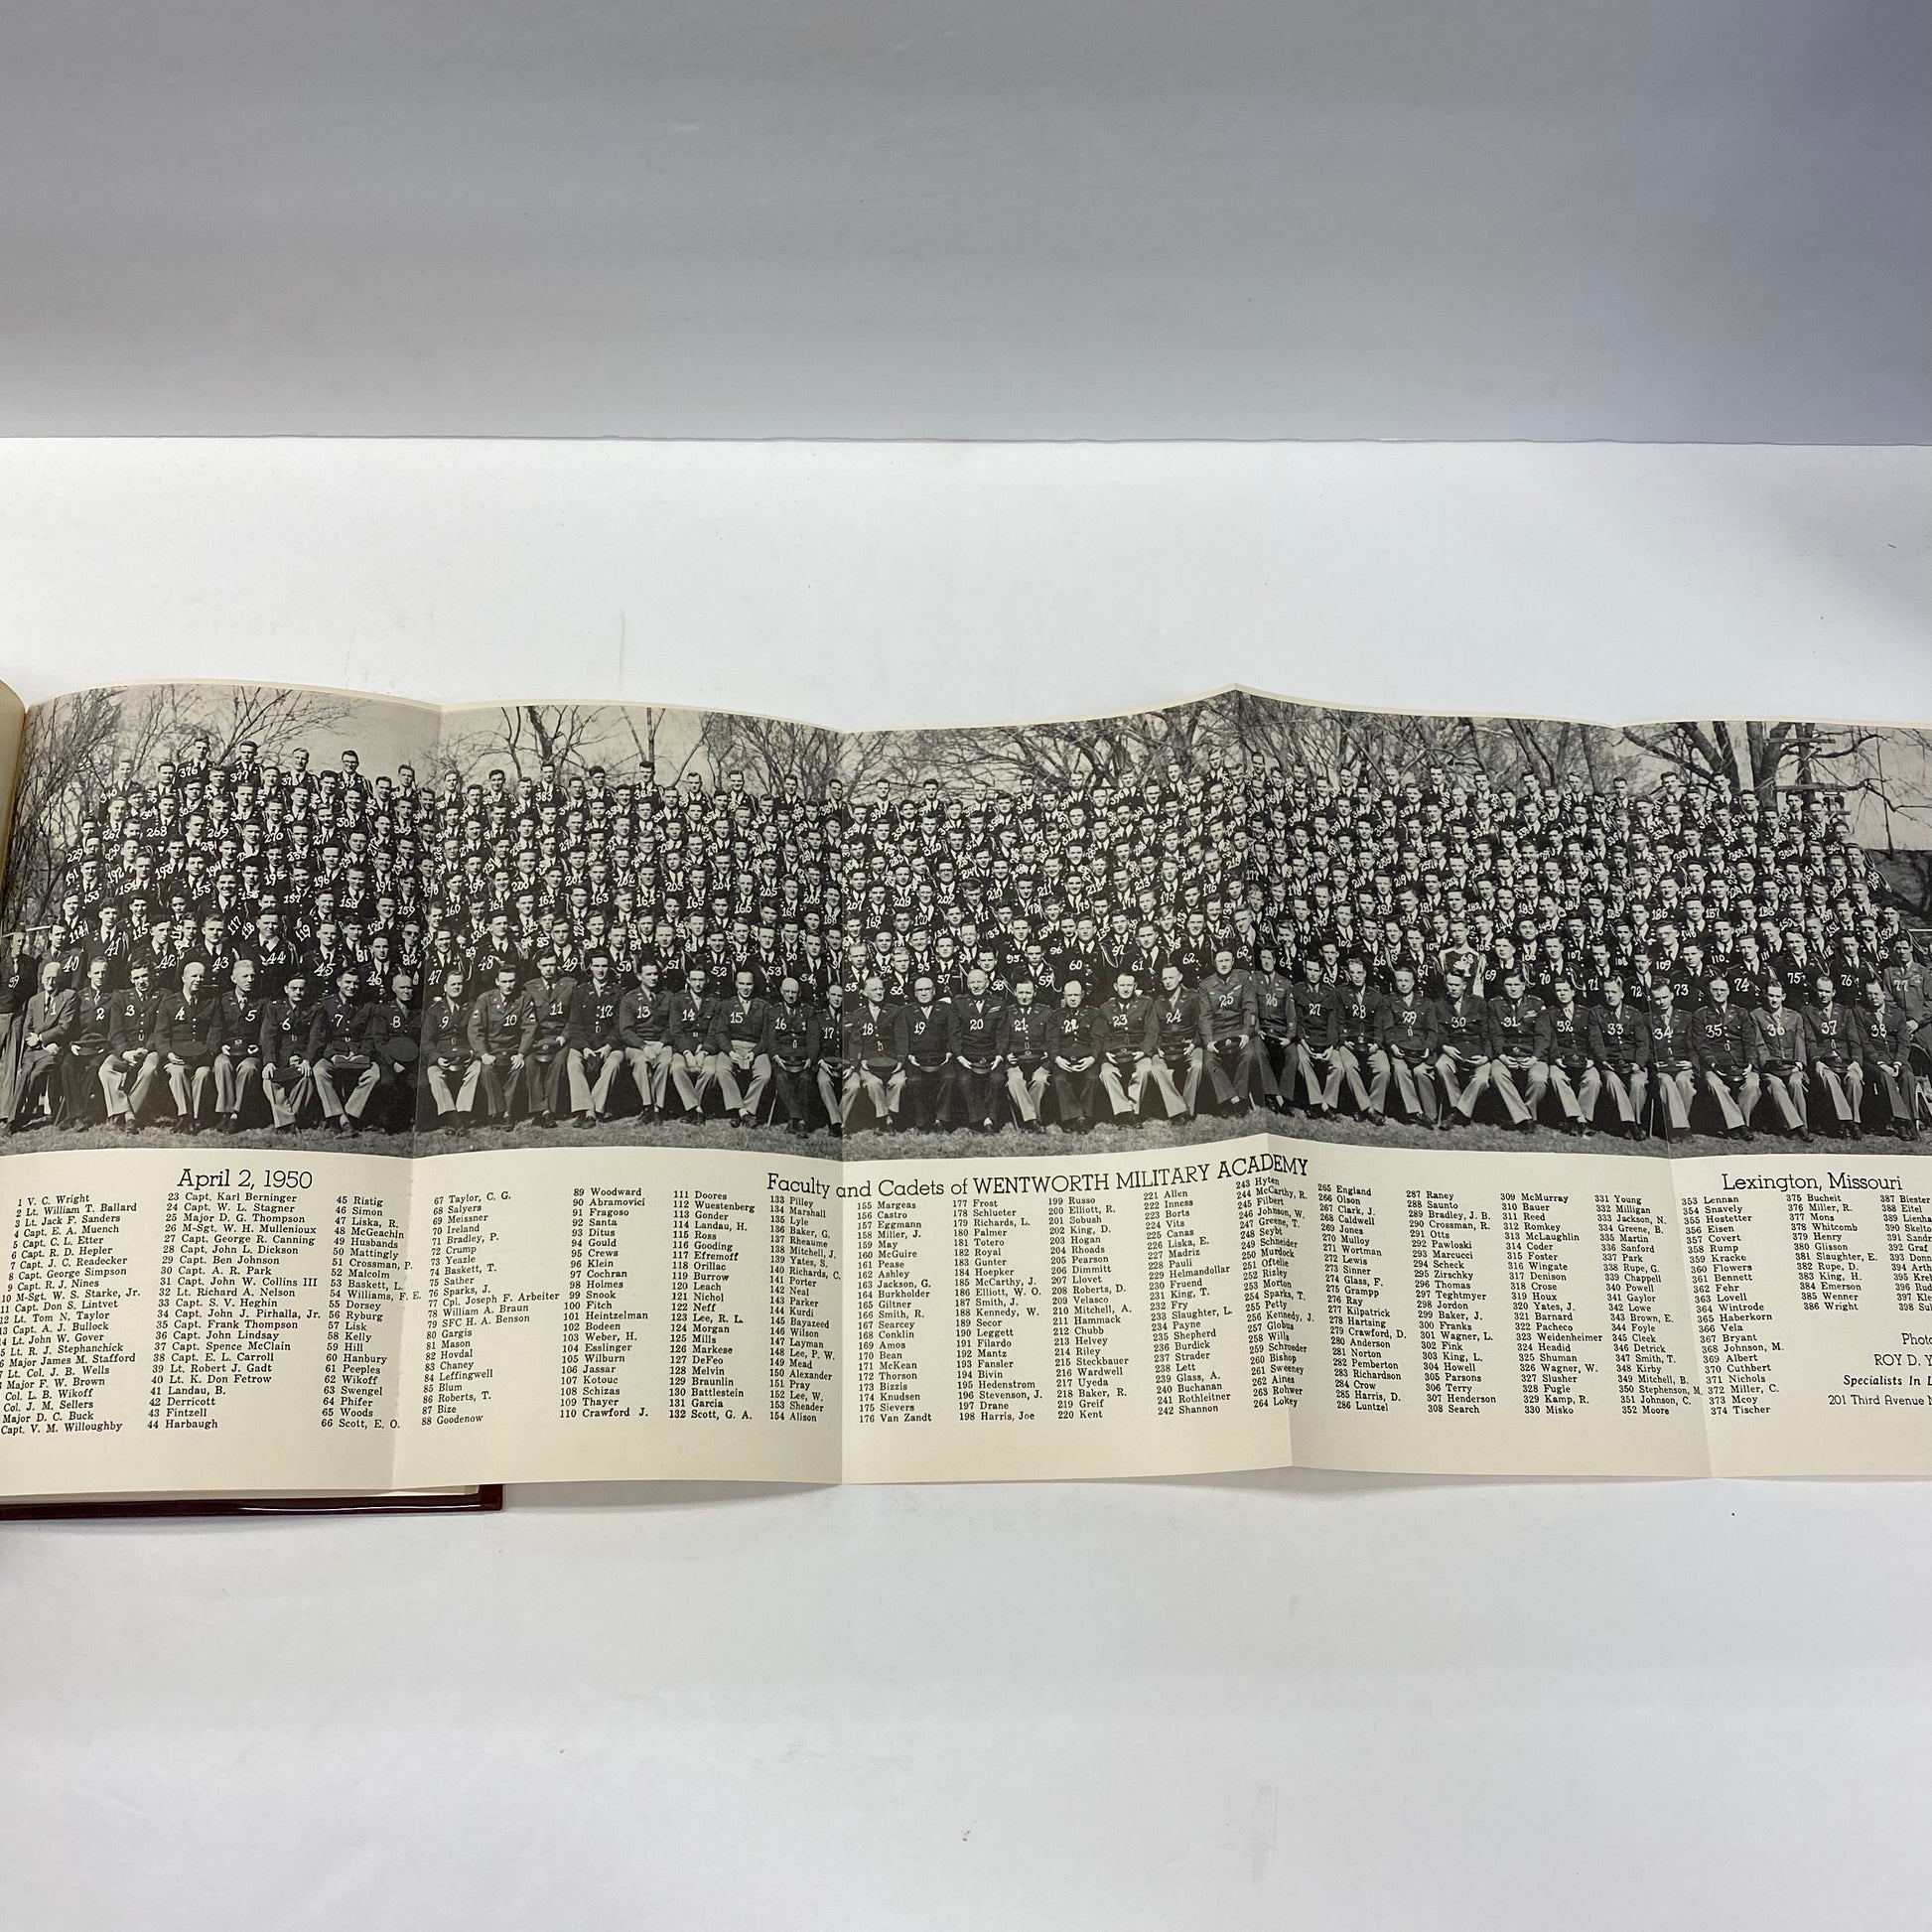 April 2, 1950
Faculty and Cadets of WENTWORTH MILITARY ACADEMY
Lexington, Missouri
1 V. C. Wright
2 Lt. William T. Ballard
3 Lt. Jack F. Sanders
4 Capt. E. A. Muench
5 Capt. C. L. Etter
6 Capt. R. D. Hepler
7 Capt. J. C. Readecker
8 Capt. George Simpson
9 Capt. R. J. Nines
10 M-Sgt. W. S. Starke, Jr.
11 Capt. Don S. Lintvet
12 Lt. Tom N. Taylor
13 Capt. A. J. Bullock
14 Lt. John W. Gover
5 Lt. R. J. Stephanchick
6 Major James M. Stafford
Lt. Col. J. B. Wells
Major F. W. Brown
Col. L. B. Wikoff
Col. J. M. Sellers
Major D. C. Buck
Capt. V. M. Willoughby
23 Capt. Karl Berninger
24 Capt. W. L. Stagner
25 Major D. G. Thompson
26 M-Sgt. W. H. Mullenioux
27 Capt. George R. Canning
28 Capt. John L. Dickson
29 Capt. Ben Johnson
30 Capt. A. R. Park
31 Capt. John W. Collins III
32 Lt. Richard A. Nelson
33 Capt. S. V. Heghin
34 Capt. John J. Pirhalla, Jr.
35 Capt. Frank Thompson
36 Capt. John Lindsay
37 Capt. Spence McClain
38 Capt. E. L. Carroll
39 Lt. Robert J. Gadt
40 Lt. K. Don Fetrow
41 Landau, B.
42 Derricott
43 Fintzell
44 Harbaugh
45 Ristig
46 Simon
47 Liska, R.
48 McGeachin
49 Husbands
50 Mattingly
51 Crossman, P.
52 Malcolm
53 Baskett, L.
54 Williams, F. E.
55 Dorsey
56 Ryburg
57 Lisk
58 Kelly
59 Hill
60 Hanbury
61 Peeples
62 Wikoff
63 Swengel
64 Phifer
65 Woods
66 Scott, E. O.
67 Taylor, C. G.
68 Salyers
69 Meissner
70 Ireland
71 Bradley, P.
72 Crump
73 Yeazle
74 Baskett, T.
75 Sather
76 Sparks, J.
77 Cpl. Joseph F. Arbeiter
78 William A. Braun
79 SFC H. A. Benson
80 Gargis
81 Mason
82 Hovdal
83 Chaney
84 Leffingwell
85 Blum
86 Roberts, T.
87 Bize
88 Goodenow
89 Woodward
90 Abramovici
91 Fragoso
92 Santa
93 Ditus
94 Gould
95 Crews
96 Klein
97 Cochran
98 Holmes
99 Snook
100 Fitch
101 Heintzelman
102 Bodeen
103 Weber, H.
104 Esslinger
105 Wilburn
106 Jassar
107 Kotouc
108 Schizas
109 Thayer
110 Crawford J.
111 Doores
112 Wuestenberg
113 Gonder
114 Landau, H.
115 Ross
116 Gooding
117 Efremoff
118 Orillac
119 Burrow
120 Leach
121 Nichol
122 Neff
123 Lee, R. L.
124 Morgan
125 Mills
126 Markese
127 DeFeo
128 Melvin
129 Braunlin
130 Battlestein
131 Garcia
132 Scott, G. A.
133 Pilley
134 Marshall
135 Lyle
136 Baker, G.
137 Rheaume
138 Mitchell, J.
139 Yates, S.
140 Richards, C.
141 Porter
142 Neal
143 Parker
144 Kurdi
145 Bayazeed
146 Wilson
147 Layman
148 Lee, P. W.
149 Mead
150 Alexander
151 Pray
152 Lee, W.
153 Sheader
154 Alison
155 Margeas
156 Castro
157 Eggmann
158 Miller, J.
159 May
160 McGuire
161 Pease
162 Ashley
163 Jackson, G.
164 Burkholder
165 Giltner
166 Smith, R.
167 Searcey
168 Conklin
169 Amos
170 Bean
171 McKean
172 Thorson
173 Bizzis
174 Knudsen
175 Sievers
176 Van Zandt
177 Frost
178 Schlueter
179 Richards, L.
180 Palmer
181 Totero
182 Royal
183 Gunter
184 Hoepker
185 McCarthy, J.
186 Elliott, W. O.
187 Smith, J.
188 Kennedy, W.
189 Secor
190 Leggett
191 Filardo
192 Mantz
193 Fansler
194 Bivin
195 Hedenstrom
196 Stevenson, J.
197 Drane
198 Harris, Joe
199 Russo
200 Elliott, R.
201 Sobush
202 King, D.
203 Hogan
204 Rhoads
205 Pearson
206 Dimmitt
207 Llovet
208 Roberts, D.
209 Velasco
210 Mitchell, A.
211 Hammack
212 Chubb
213 Helvey
214 Riley
215 Steckbauer
216 Wardwell
217 Uyeda
218 Baker, R.
219 Greif
220 Kent
221 Allen
222 Inness
223 Borts
224 Vits
225 Canas
226 Liska, E.
227 Madriz
228 Pauli
229 Helmandollar
230 Fruend
231 King, T.
232 Fry
233 Slaughter, L.
234 Payne
235 Shepherd
236 Burdick
237 Strader
238 Lett
239 Glass, A.
240 Buchanan
241 Rothleitner
242 Shannon
243 Hyten
244 McCarthy, R.
245 Filbert
246 Johnson, W.
247 Greene, T.
248 Seybt
249 Schneider
250 Murdock
251 Oftelie
252 Rizley
253 Morton
254 Sparks, T.
255 Petty
256 Kennedy, J.
257 Globus
258 Wills
259 Schroeder
260 Bishop
261 Sweeney
262 Aines
263 Rohwer
264 Lokey
265 England
266 Olson
267 Clark, J.
268 Caldwell
269 Jones
270 Mulloy
271 Wortman
272 Lewis
273 Sinner
274 Glass, F.
275 Grampp
276 Ray
277 Kilpatrick
278 Hartsing
279 Crawford, D.
280 Anderson
281 Norton
282 Pemberton
283 Richardson
284 Crow
285 Harris, D.
286 Luntzel
287 Raney
288 Saunto
289 Bradley, J. B.
290 Crossman, R.
291 Otts
292 Pawloski
293 Marcucci
294 Scheck
295 Zirschky
296 Thomas
297 Teghtmyer
298 Jordon
299 Baker, J.
300 Franks
301 Wagner, L.
302 Fink
303 King, L.
304 Howell
305 Parsons
306 Terry
307 Henderson
308 Search
309 McMurray
310 Bauer
311 Reed
312 Romkey
313 McLaughlin
314 Coder
315 Foster
316 Wingate
317 Denison
318 Crose
319 Houx
320 Yates, J.
321 Barnard
322 Pacheco
323 Weidenheimer
324 Headid
325 Shuman
326 Wagner, W.
327 Slusher
328 Fugle
329 Kamp, R.
330 Misko
331 Young
332 Milligan
333 Jackson, N.
334 Greene, B.
335 Martin
336 Sanford
337 Park
338 Rupe, G.
339 Chappell
340 Powell
341 Gaylor
342 Lowe
343 Brown, E.
344 Foyle
345 Cleek
346 Detrick
347 Smith, T.
348 Kirby
349 Mitchell, B.
350 Stephenson, M.
351 Johnson, C.
352 Moore
353 Lennan
354 Snavely
355 Hostetter
356 Eisen
357 Covert
358 Rump
359 Kracke
360 Flowers
361 Bennett
362 Fehr
363 Lovell
364 Wintrode
365 Haberkorn
366 Vela
367 Bryant
368 Johnson, M.
369 Albert
370 Cuthbert
371 Nichols
372 Miller, C.
373 Mcoy
374 Tischer
375 Bucheit
376 Miller, R.
377 Mons
378 Whitcomb
379 Henry
380 Glisson
381 Slaughter, E.
382 Rupe, D.
383 King, H.
384 Emerson
385 Wenner
386 Wright
387 Biester
388 Eitel
389 Lienha
390 Skelto
391 Sandr
392 Graf
393 Donn
394 Arth
395 Kreh
396 Rud
397 Kle
398 Sul
Photo
ROY D. Y
Specialists In L
201 Third Avenue N